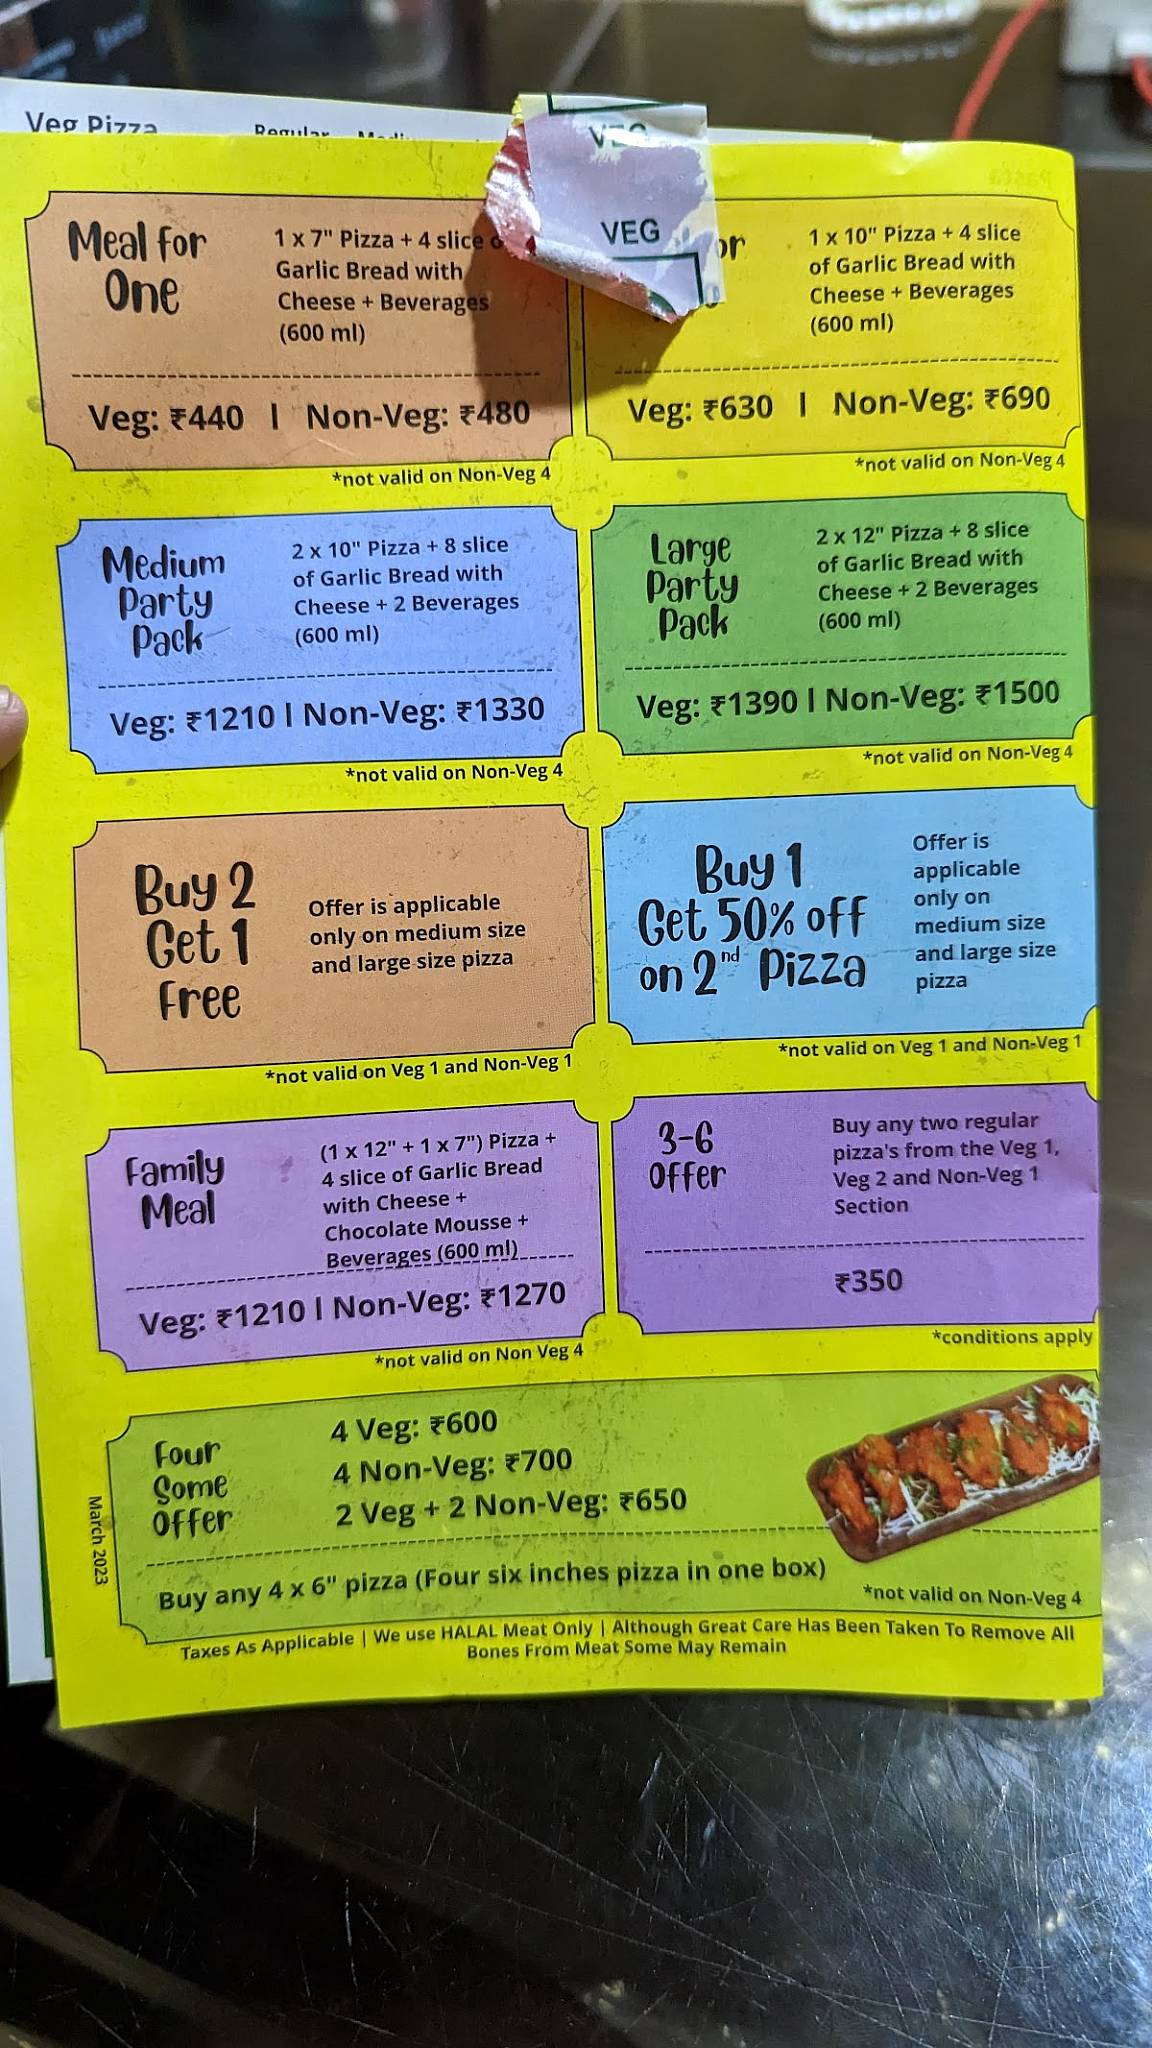 Veg Pizza
Regular
VEG
VEG
Meal for
One
1 x 7" Pizza + 4 slice
Garlic Bread with
Cheese + Beverages
(600 ml)
Veg: ₹440 | Non-Veg: ₹480
*not valid on Non-Veg 4
1 x 10" Pizza + 4 slice
of Garlic Bread with
Cheese + Beverages
(600 ml)
Veg: ₹630 | Non-Veg: ₹690
*not valid on Non-Veg 4
Medium
Party
Pack
2 x 10" Pizza + 8 slice
of Garlic Bread with
Cheese + 2 Beverages
(600 ml)
Veg: ₹1210 | Non-Veg: ₹1330
*not valid on Non-Veg 4
Large
Party
Pack
2 x 12" Pizza + 8 slice
of Garlic Bread with
Cheese + 2 Beverages
(600 ml)
Veg: ₹1390 | Non-Veg: ₹1500
*not valid on Non-Veg 4
Buy 2
Get 1
Free
Offer is applicable
only on medium size
and large size pizza
*not valid on Veg 1 and Non-Veg 1
Buy 1
Get 50% off
on 2nd Pizza
Offer is
applicable
only on
medium size
and large size
pizza
*not valid on Veg 1 and Non-Veg 1
Family
Meal
(1 x 12" + 1 x 7") Pizza +
4 slice of Garlic Bread
with Cheese +
Chocolate Mousse +
Beverages (600 ml)
Veg: ₹1210 | Non-Veg: ₹1270
*not valid on Non Veg 4
3-6
Offer
Buy any two regular
pizza's from the Veg 1,
Veg 2 and Non-Veg 1
Section
₹350
*conditions apply
Four
Some
Offer
4 Veg: ₹600
4 Non-Veg: ₹700
2 Veg + 2 Non-Veg: ₹650
Buy any 4 x 6" pizza (Four six inches pizza in one box)
*not valid on Non-Veg 4
March 2023
Taxes As Applicable | We use HALAL Meat Only | Although Great Care Has Been Taken To Remove All
Bones From Meat Some May Remain